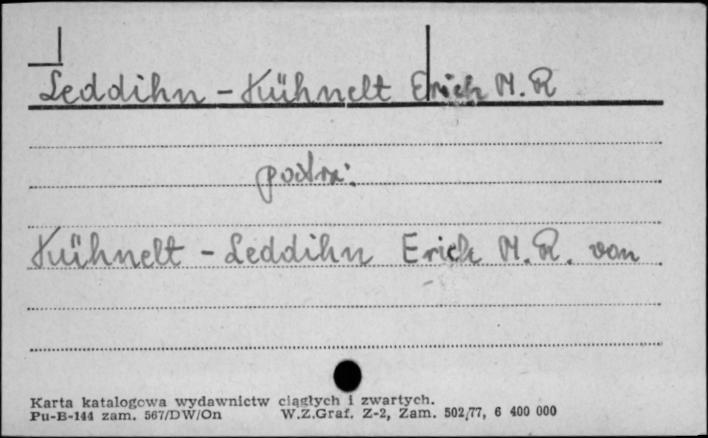 Leddihn - Kühnelt Erich M. R
patrz:
Kühnelt - Leddihn Erich M. R. von
Karta katalogowa wydawnictw ciągłych i zwartych.
Pu-B-144 zam. 567/DW/On W.Z.Graf. Z-2, Zam. 502/77, 6 400 000